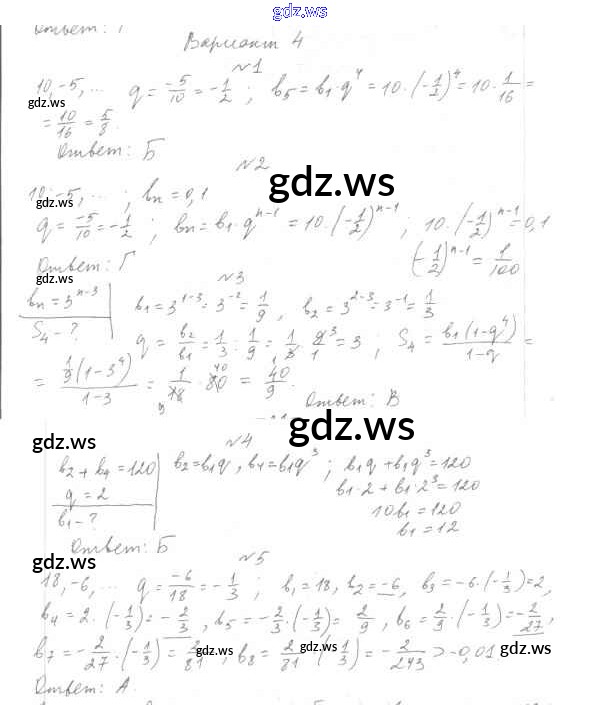 gdz.ws
Ответ: Г
Вариант 4
№1
10, -5, ... q = -5/10 = -1/2 ; b₅ = b₁·q⁴ = 10·(-1/2)⁴ = 10·1/16 =
gdz.ws
= 10/16 = 5/8.
Ответ: Б
№2
gdz.ws
10, -5, ... ; bn = 0,1
gdz.ws
q = -5/10 = -1/2 ; bn = b₁·qⁿ⁻¹ = 10·(-1/2)ⁿ⁻¹ ; 10·(-1/2)ⁿ⁻¹ = 0,1
Ответ: Г (-1/2)ⁿ⁻¹ = 1/100
№3
gdz.ws
bn = 3ⁿ⁻³ b₁ = 3¹⁻³ = 3⁻² = 1/9 , b₂ = 3²⁻³ = 3⁻¹ = 1/3
S₄ - ? q = b₂/b₁ = 1/3 : 1/9 = 1/3 · 9/1 = 3 ; S₄ = b₁(1-q⁴)/1-q =
= 1/9(1-3⁴)/1-3 = 1/18 · 80 = 40/9.
Ответ: В
gdz.ws
№4
gdz.ws
b₂ + b₄ = 120 b₂ = b₁q, b₄ = b₁q³ ; b₁q + b₁q³ = 120
q = 2 b₁·2 + b₁·2³ = 120
b₁ - ? 10b₁ = 120
b₁ = 12
Ответ: Б
№5
gdz.ws
18, -6, ... q = -6/18 = -1/3 ; b₁ = 18, b₂ = -6, b₃ = -6·(-1/3) = 2,
b₄ = 2·(-1/3) = -2/3 , b₅ = -2/3·(-1/3) = 2/9 , b₆ = 2/9·(-1/3) = -2/27,
b₇ = -2/27·(-1/3) = 2/81 , b₈ = 2/81·(-1/3) = -2/243 > -0,01
gdz.ws
gdz.ws
gdz.ws
Ответ: А